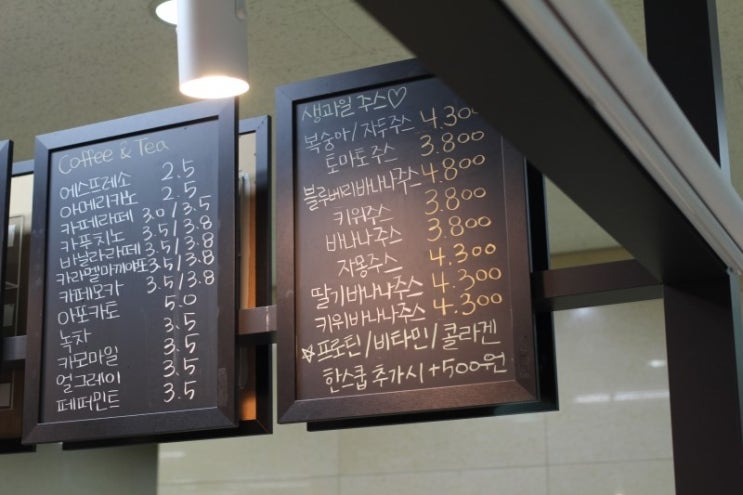 Coffee & Tea
에스프레소 2.5
아메리카노 2.5
카페라떼 3.0/3.5
카푸치노 3.5/3.8
바닐라라떼 3.5/3.8
카라멜마끼야또 3.5/3.8
카페모카 3.5/3.8
아포카토 5.0
녹차 3.5
카모마일 3.5
얼그레이 3.5
페퍼민트 3.5
생과일 주스♡
복숭아/자두주스 4.300
토마토주스 3.800
블루베리바나나주스 4.800
키위주스 3.800
바나나주스 3.800
자몽주스 4.300
딸기바나나주스 4.300
키위바나나주스 4.300
☆프로틴/비타민/콜라겐
한스쿱 추가시 +500원